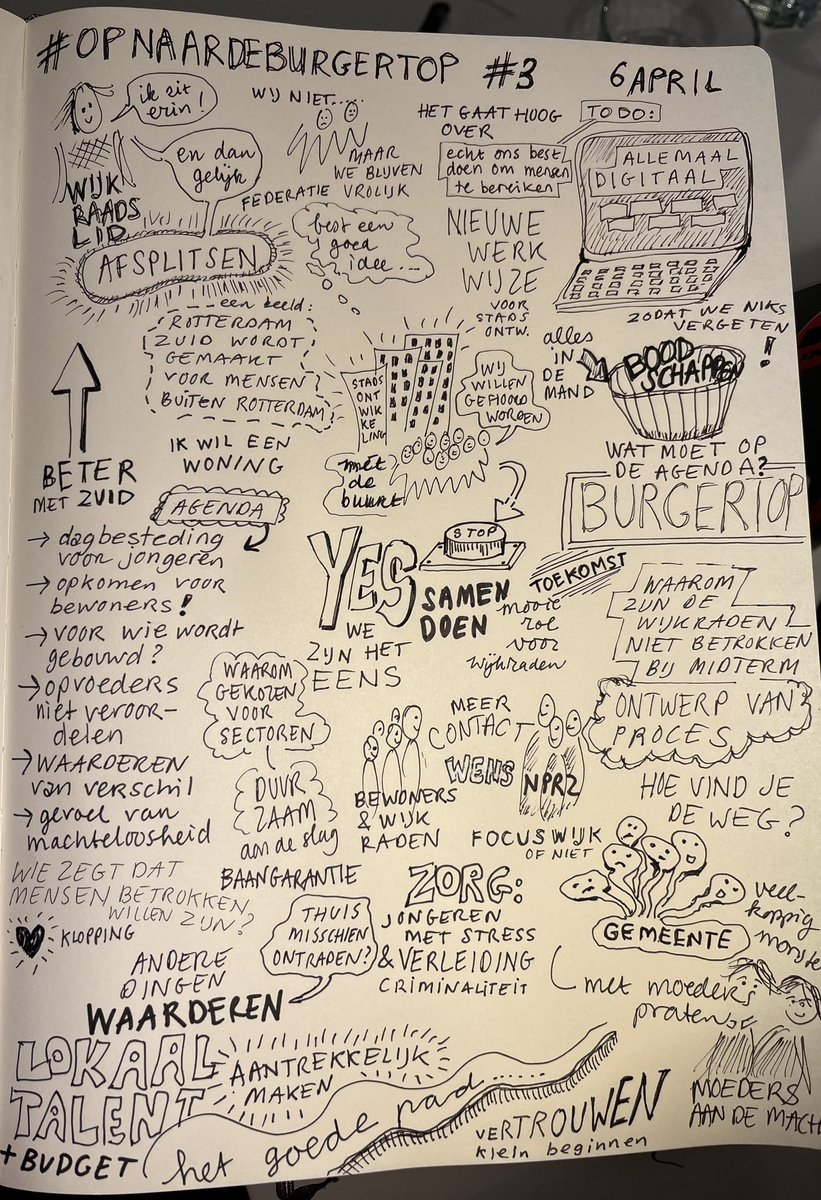 #OPNAARDEBURGERTOP #3
6 APRIL
ik zit
erin!
WIJ NIET....
MAAR
WE BLIJVEN
VROLIJK
FEDERATIE
HET GAAT HOOG
OVER
TO DO:
echt ons best
doen om mensen
te bereiken
ALLEMAAL
DIGITAAL
WIJK
RAADS
LID
en dan
gelijk
AFSPLITSEN
best een
goed
idee...
NIEUWE
WERK
WIJZE
VOOR
STADS
ONTW.
ZODAT WE NIKS
VERGETEN!
een beeld:
ROTTERDAM
ZUID WORDT
GEMAAKT
VOOR MENSEN
BUITEN ROTTERDAM
STADS
ONT
WIK
KE
LING
WIJ
WILLEN
GEHOORD
WORDEN
alles
IN
DE
MAND
BOOD
SCHAPPEN
BETER
MET ZUID
IK WIL EEN
WONING
met
de
buurt
WAT MOET OP
DE AGENDA?
BURGERTOP
AGENDA
→ dagbesteding
voor jongeren
→ opkomen voor
bewoners!
→ voor wie wordt
gebouwd?
→ opvoeders
niet veroor-
delen
→ WAARDEREN
van verschil
→ gevoel van
machteloosheid
YES
WE
ZIJN HET
EENS
STOP
SAMEN
DOEN
TOEKOMST
mooie
rol
voor
wijkraden
WAAROM
ZIJN DE
WIJKRADEN
NIET BETROKKEN
BIJ MIDTERM
WAAROM
GEKOZEN
VOOR
SECTOREN
ONTWERP VAN
PROCES
MEER
CONTACT
WENS
NPRZ
BEWONERS
& WIJK
RADEN
DUUR
ZAAM
aan de slag
HOE VIND JE
DE WEG?
FOCUSWIJK
OF NIET
WIE ZEGT DAT
MENSEN BETROKKEN
WILLEN ZIJN?
BAANGARANTIE
KLOPPING
ZORG:
JONGEREN
MET STRESS
& VERLEIDING
CRIMINALITEIT
THUIS
MISSCHIEN
ONTRADEN?
GEMEENTE
veel-
koppig
monster
ANDERE
DINGEN
WAARDEREN
met moeders
praten
MOEDERS
AAN DE MACH
LOKAAL
TALENT
+ BUDGET
AANTREKKELIJK
MAKEN
het goede pad.....
VERTROUWEN
klein beginnen